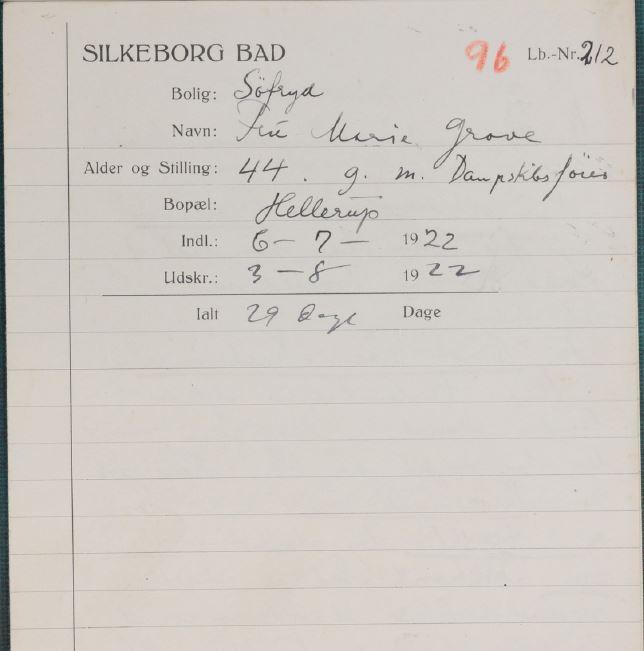 SILKEBORG BAD 96 Lb.-Nr. 212
Bolig: Söfryd
Navn: Fru Marie Grove
Alder og Stilling: 44. g. m. Dampskibsfører
Bopæl: Hellerup
Indl.: 6 - 7 - 1922
Udskr.: 3 - 8 1922
Ialt 29 Dage Dage